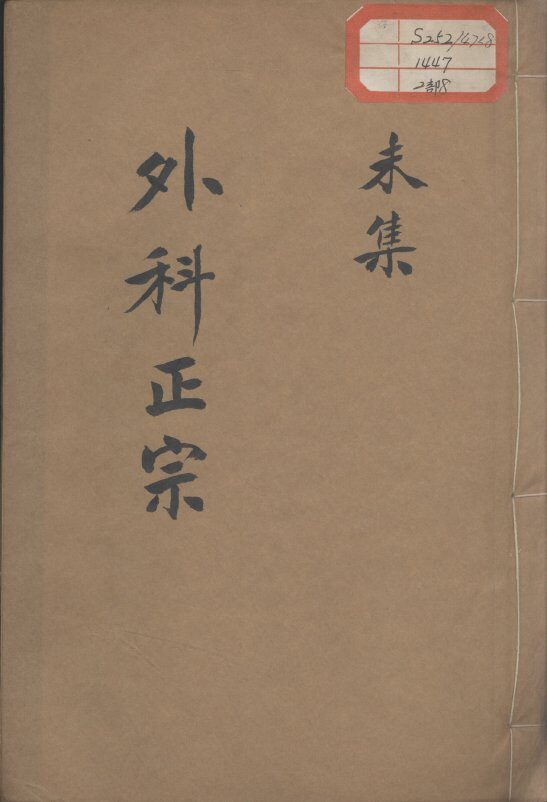 S252/4728
1447
2部8
未集
外科正宗